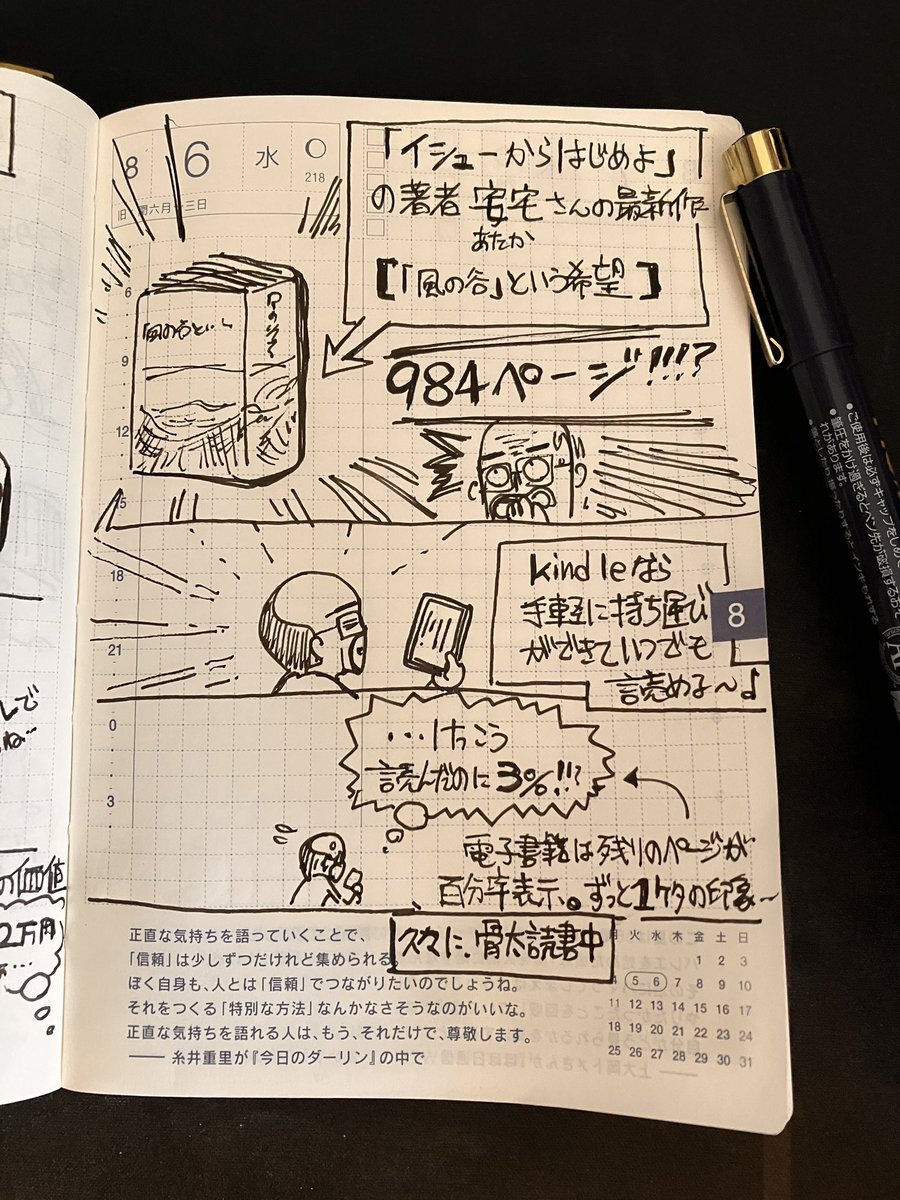 8 6 水
218
「イシューからはじめよ」
の著者 安宅さんの最新作
あたか
【「風の谷」という希望】
984ページ!!!?
「風の谷とい
6
9
12
15
18
21
0
3
kindleなら
手軽に持ち運び
ができていつでも
読める〜♪
8
…けっこう
読んだのに3%!!?
電子書籍は残りのページが
百分率表示。ずっと1ケタの印象〜
久々に、骨太読書中
正直な気持ちを語っていくことで、
「信頼」は少しずつだけれど集められる。
ぼく自身も、人とは「信頼」でつながりたいのでしょうね。
それをつくる「特別な方法」なんかなさそうなのがいいな。
正直な気持ちを語れる人は、もう、それだけで、尊敬します。
—— 糸井重里が『今日のダーリン』の中で
月 火 水 木 金 土 日
1 2 3
4 5 6 7 8 9 10
11 12 13 14 15 16 17
18 19 20 21 22 23 24
25 26 27 28 29 30 31
の価値
2万円
●ご使用後は必ずキャップをしめて
●筆圧をかけ過ぎるとペン先が破損するおそ
れがあります。